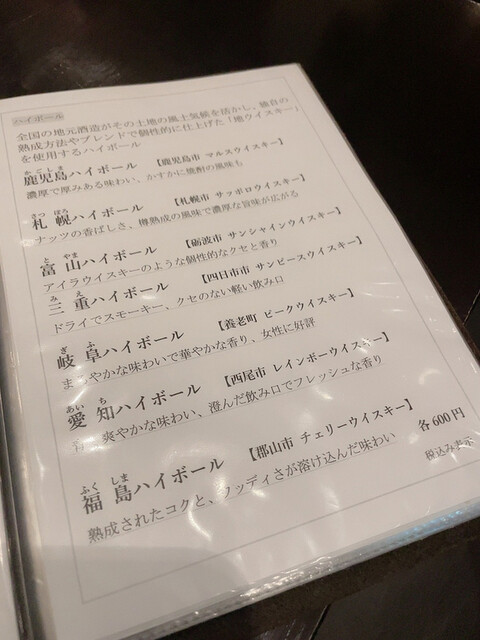 ハイボール
全国の地元酒造がその土地の風土気候を活かし、独自の
熟成方法やブレンドで個性的に仕上げた「地ウイスキー」
を使用するハイボール
かごしま
鹿児島ハイボール 【鹿児島市 マルスウイスキー】
濃厚で厚みある味わい、かすかに焼酎の風味も
さっ ぽろ
札 幌ハイボール 【札幌市 サッポロウイスキー】
ナッツの香ばしさ、樽熟成の風味で濃厚な旨味が広がる
と やま
富 山ハイボール 【砺波市 サンシャインウイスキー】
アイラウイスキーのような個性的なクセと香り
み え
三 重ハイボール 【四日市市 サンピースウイスキー】
ドライでスモーキー、クセのない軽い飲み口
ぎ ふ
岐 阜ハイボール 【養老町 ピークウイスキー】
まろやかな味わいで華やかな香り、女性に好評
あい ち
愛 知ハイボール 【西尾市 レインボーウイスキー】
爽やかな味わい、澄んだ飲み口でフレッシュな香り
ふく しま
福 島ハイボール 【郡山市 チェリーウイスキー】
熟成されたコクと、ウッディさが溶け込んだ味わい
各600円
税込み表示